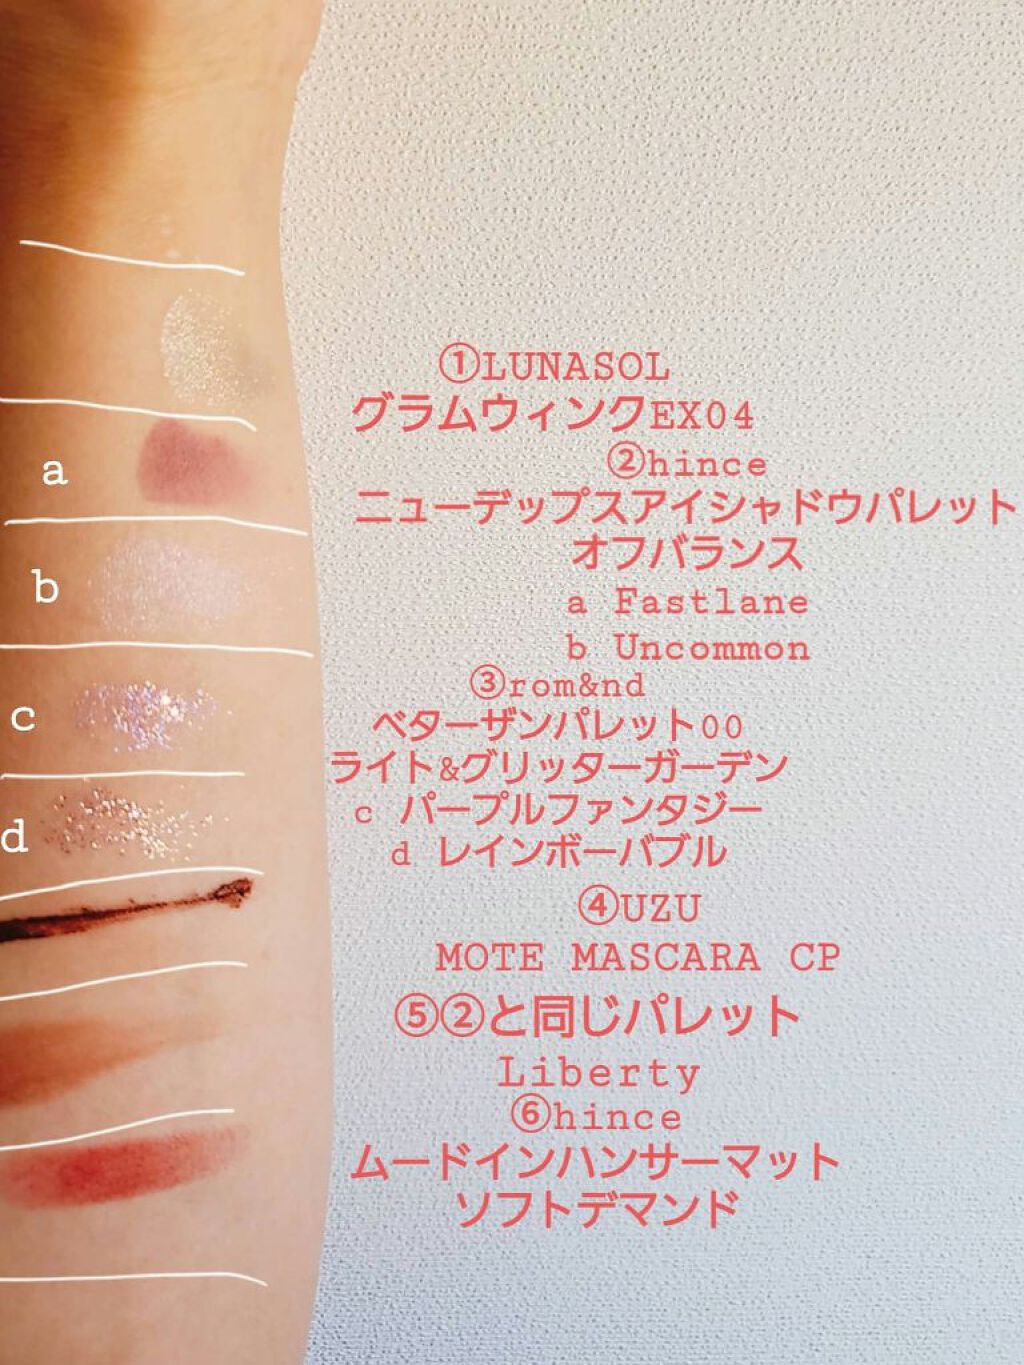 ①LUNASOL
グラムウィンクEX04
②hince
ニューデップスアイシャドウパレット
オフバランス
a Fastlane
b Uncommon
③rom&nd
ベターザンパレット00
ライト&グリッターガーデン
c パープルファンタジー
d レインボーバブル
④UZU
MOTE MASCARA CP
⑤②と同じパレット
Liberty
⑥hince
ムードインハンサーマット
ソフトデマンド
a
b
c
d